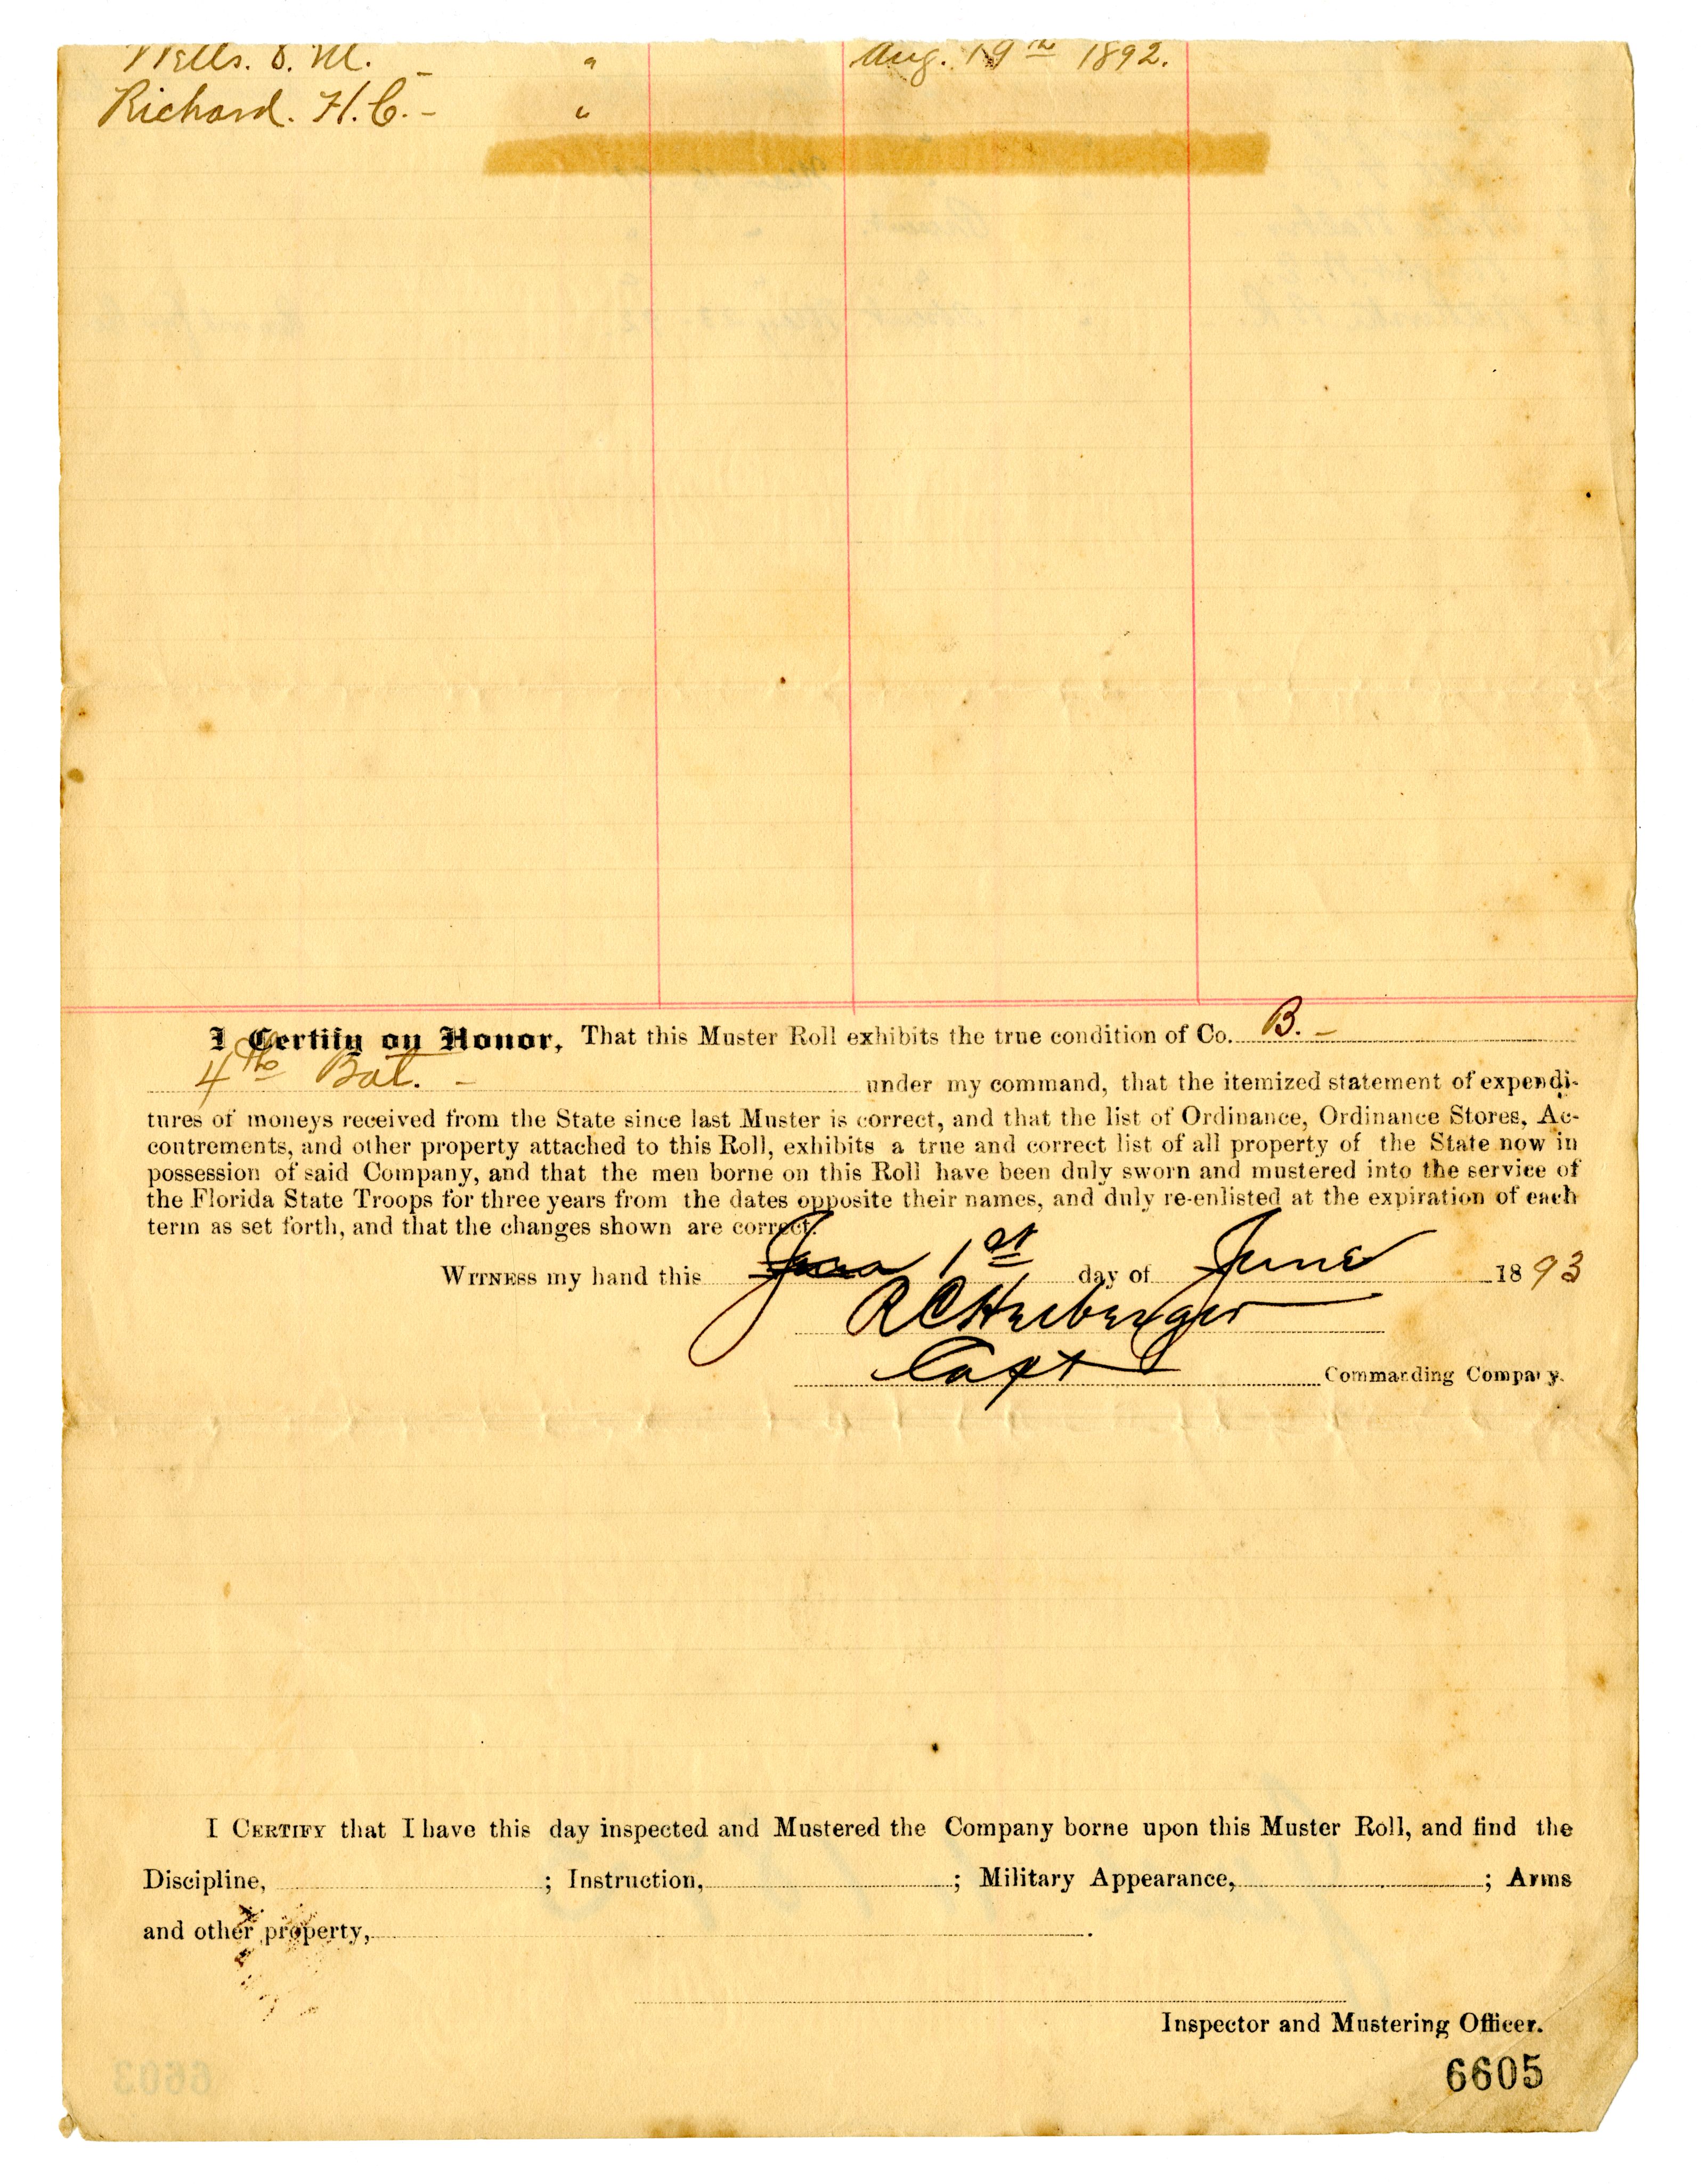 Wells. O. M. - " Aug. 19th 1892.
Richard. H. C. - "
I Certify on Honor, That this Muster Roll exhibits the true condition of Co. B. -
4th Bat. - under my command, that the itemized statement of expendi-
tures of moneys received from the State since last Muster is correct, and that the list of Ordinance, Ordinance Stores, Ac-
coutrements, and other property attached to this Roll, exhibits a true and correct list of all property of the State now in
possession of said Company, and that the men borne on this Roll have been duly sworn and mustered into the service of
the Florida State Troops for three years from the dates opposite their names, and duly re-enlisted at the expiration of each
term as set forth, and that the changes shown are correct.
WITNESS my hand this 1st day of June 1893
R C
Capt Commanding Company.
I CERTIFY that I have this day inspected and Mustered the Company borne upon this Muster Roll, and find the
Discipline, ; Instruction, ; Military Appearance, ; Arms
and other property, .
Inspector and Mustering Officer.
6605